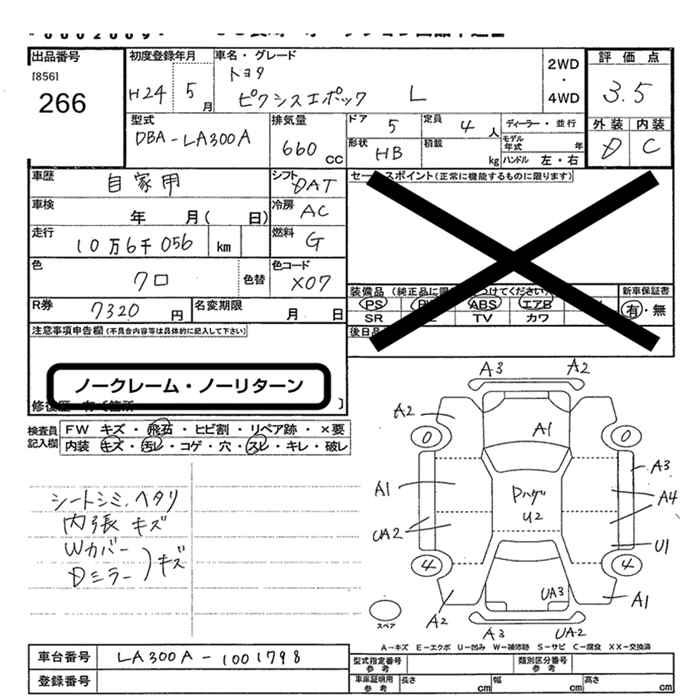 出品番号
[856]
266
初度登録年月
H24 5月
車名・グレード
トヨタ
ピクシスエポック L
2WD
・
4WD
評価点
3.5
外装 内装
D C
型式
DBA-LA300A
排気量
660 CC
ドア 5
定員 4人
ディーラー・並行
形状 HB
積載 kg
モデル年式 年
ハンドル 左・右
車歴 自家用
シフト DAT
車検 年 月( 日)
冷房 AC
走行 10万6千056 km
燃料 G
色 クロ
色替
色コード X07
R券 7320円
名変期限 月 日
セースポイント(正常に機能するものに限ります)
装備品
PS ABS エアB
SR TV カワ
新車保証書
有・無
後日品
注意事項申告欄(不具合内容等は具体的に記入して下さい)
ノークレーム・ノーリターン
検査員記入欄
FW キズ・飛石・ヒビ割・リペア跡・×要
内装 キズ・汚レ・コゲ・穴・スレ・キレ・破レ
シートシミ、ヘタリ
内張キズ
Wカバー
Dミラー
)キズ
A3 A2
A2 A1
0 0
A1 A3
A4
Pハゲ
U2
UA2 U1
4 4
UA3
A2 A1
スペア
A3 UA2
A-キズ E-エクボ U-凹み W-補修跡 S-サビ C-腐食 XX-交換済
車台番号 LA300A-1001798
登録番号
型式指定番号参考
類別区分番号参考
車庫証明用参考 長さ cm 幅 cm 高さ cm